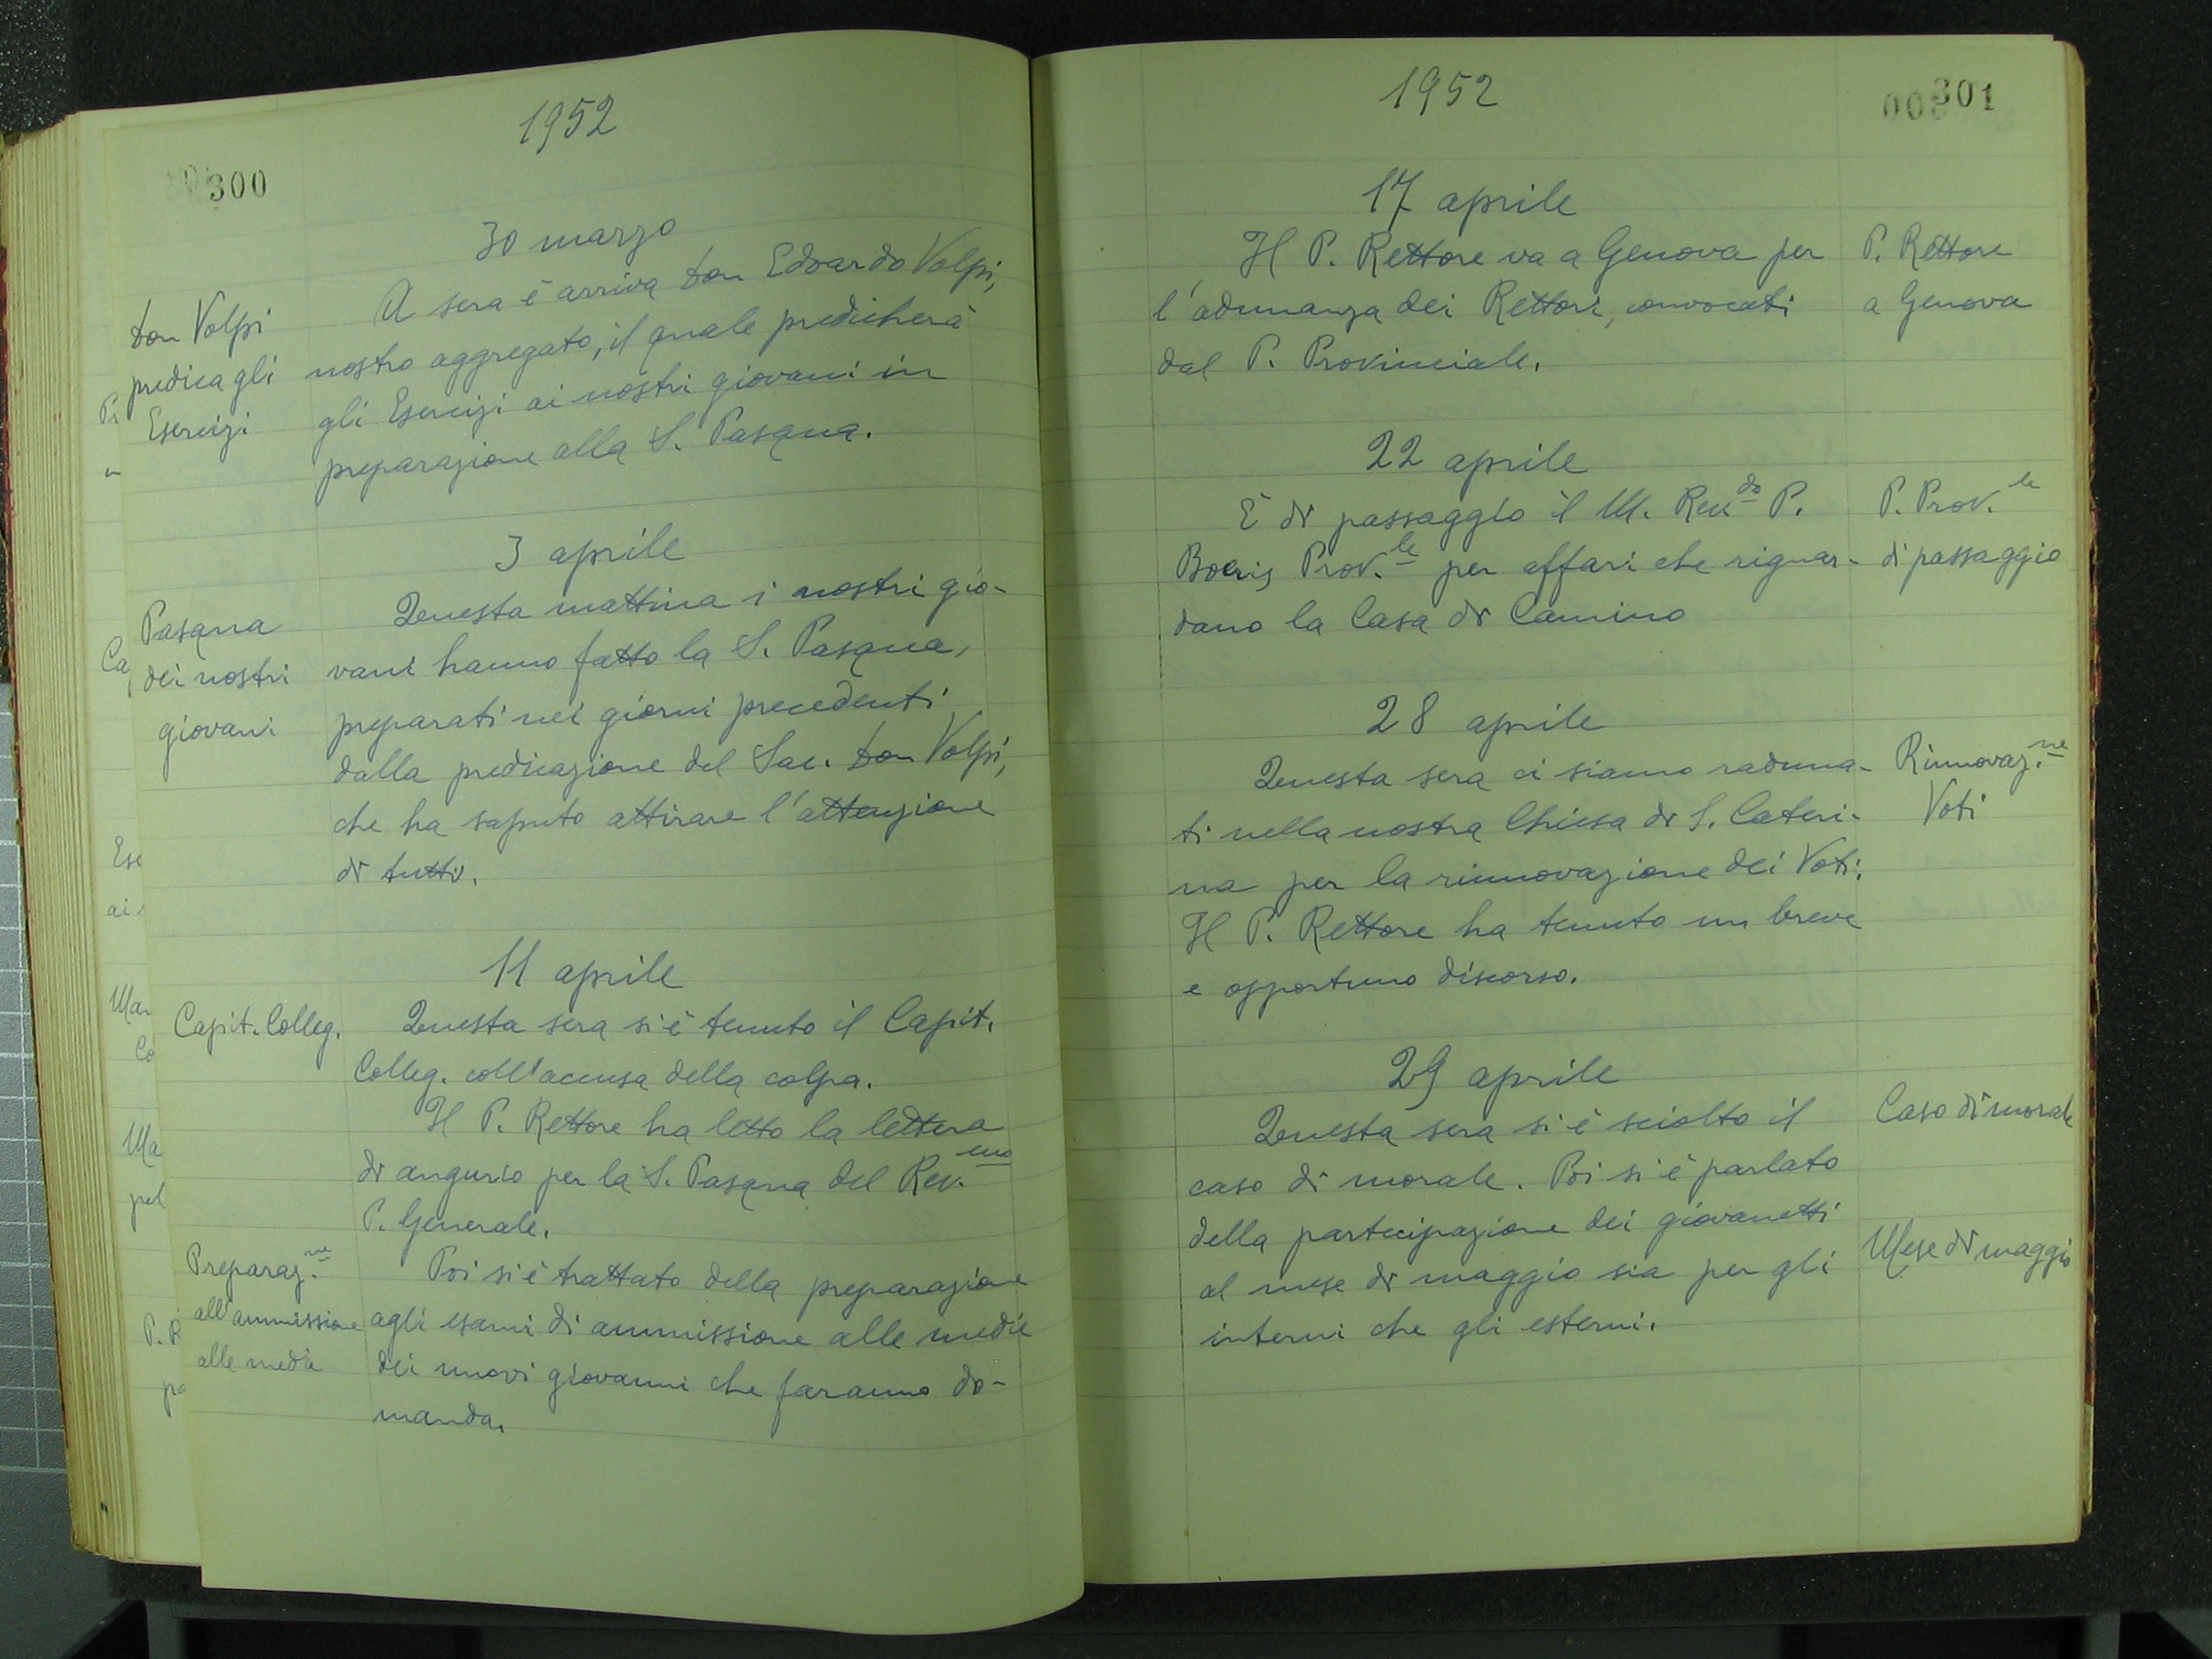 1952
300
30 marzo
Don Volpi
predica gli
Esercizi
A sera è arriva Don Edoardo Volpi,
nostro aggregato, il quale predicherà
gli Esercizi ai nostri giovani in
preparazione alla S. Pasqua.
3 aprile
Pasqua
dei nostri
giovani
Questa mattina i nostri gio-
vani hanno fatto la S. Pasqua,
preparati nei giorni precedenti
dalla predicazione del Sac. Don Volpi,
che ha saputo attirare l'attenzione
di tutti.
11 aprile
Capit. Colleg.
Questa sera si è tenuto il Capit.
Colleg. coll'accusa della colpa.
Il P. Rettore ha letto la lettera
di augurio per la S. Pasqua del Rev.mo
P. Generale.
Preparaz.ne
all'ammissione
alle medie
Poi si è trattato della preparazione
agli esami di ammissione alle medie
dei nuovi giovanni che faranno do-
manda.
1952
301
17 aprile
Il P. Rettore va a Genova per
l'adunanza dei Rettori, convocati
dal P. Provinciale.
P. Rettore
a Genova
22 aprile
È di passaggio il M. Rev.do P.
Boeris Prov.le per affari che riguar-
dano la Casa di Camino
P. Prov.le
di passaggio
28 aprile
Questa sera ci siamo raduna-
ti nella nostra Chiesa di S. Cateri-
na per la rinnovazione dei Voti.
Il P. Rettore ha tenuto un breve
e opportuno discorso.
Rinnovaz.ne
Voti
29 aprile
Questa sera si è sciolto il
caso di morale. Poi si è parlato
della partecipazione dei giovanetti
al mese di maggio sia per gli
interni che gli esterni.
Caso di morale
Mese di maggio